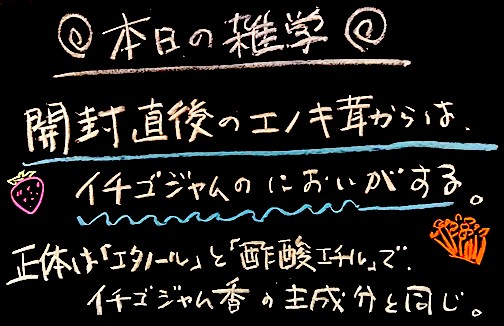 ◎ 本日の雑学 ◎
開封直後のエノキ茸からは、
イチゴジャムのにおいがする。
正体は「エタノール」と「酢酸エチル」で、
イチゴジャム香の主成分と同じ。